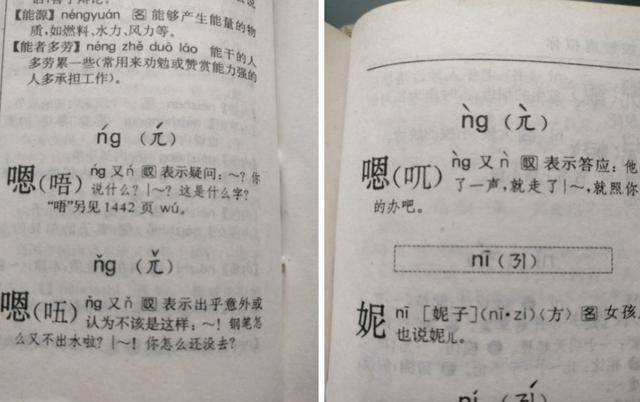 【能源】néngyuán 名 能够产生能量的物
质,如燃料、水力、风力等。
【能者多劳】néng zhě duō láo 能干的人
多劳累一些(常用来劝勉或赞赏能力强的
人多承担工作)。
ńg (ㄫˊ)
嗯(唔) ńg 又 ń 叹 表示疑问:~?你
说什么?|~?这是什么字?
“唔”另见 1442 页 wú。
ňg (ㄫˇ)
嗯(㕶) ňg 又 ň 叹 表示出乎意外或
认为不该是这样:~!钢笔怎
么又不出水啦?|~!你怎么还没去?
ǹg (ㄫˋ)
嗯(𠮾) ǹg 又 ǹ 叹 表示答应:他
了一声,就走了|~,就照你
的办吧。
nī (ㄋㄧ)
妮 nī [妮子](nī·zi)〈方〉名 女孩
也说妮儿。
ní (ㄋㄧˊ)